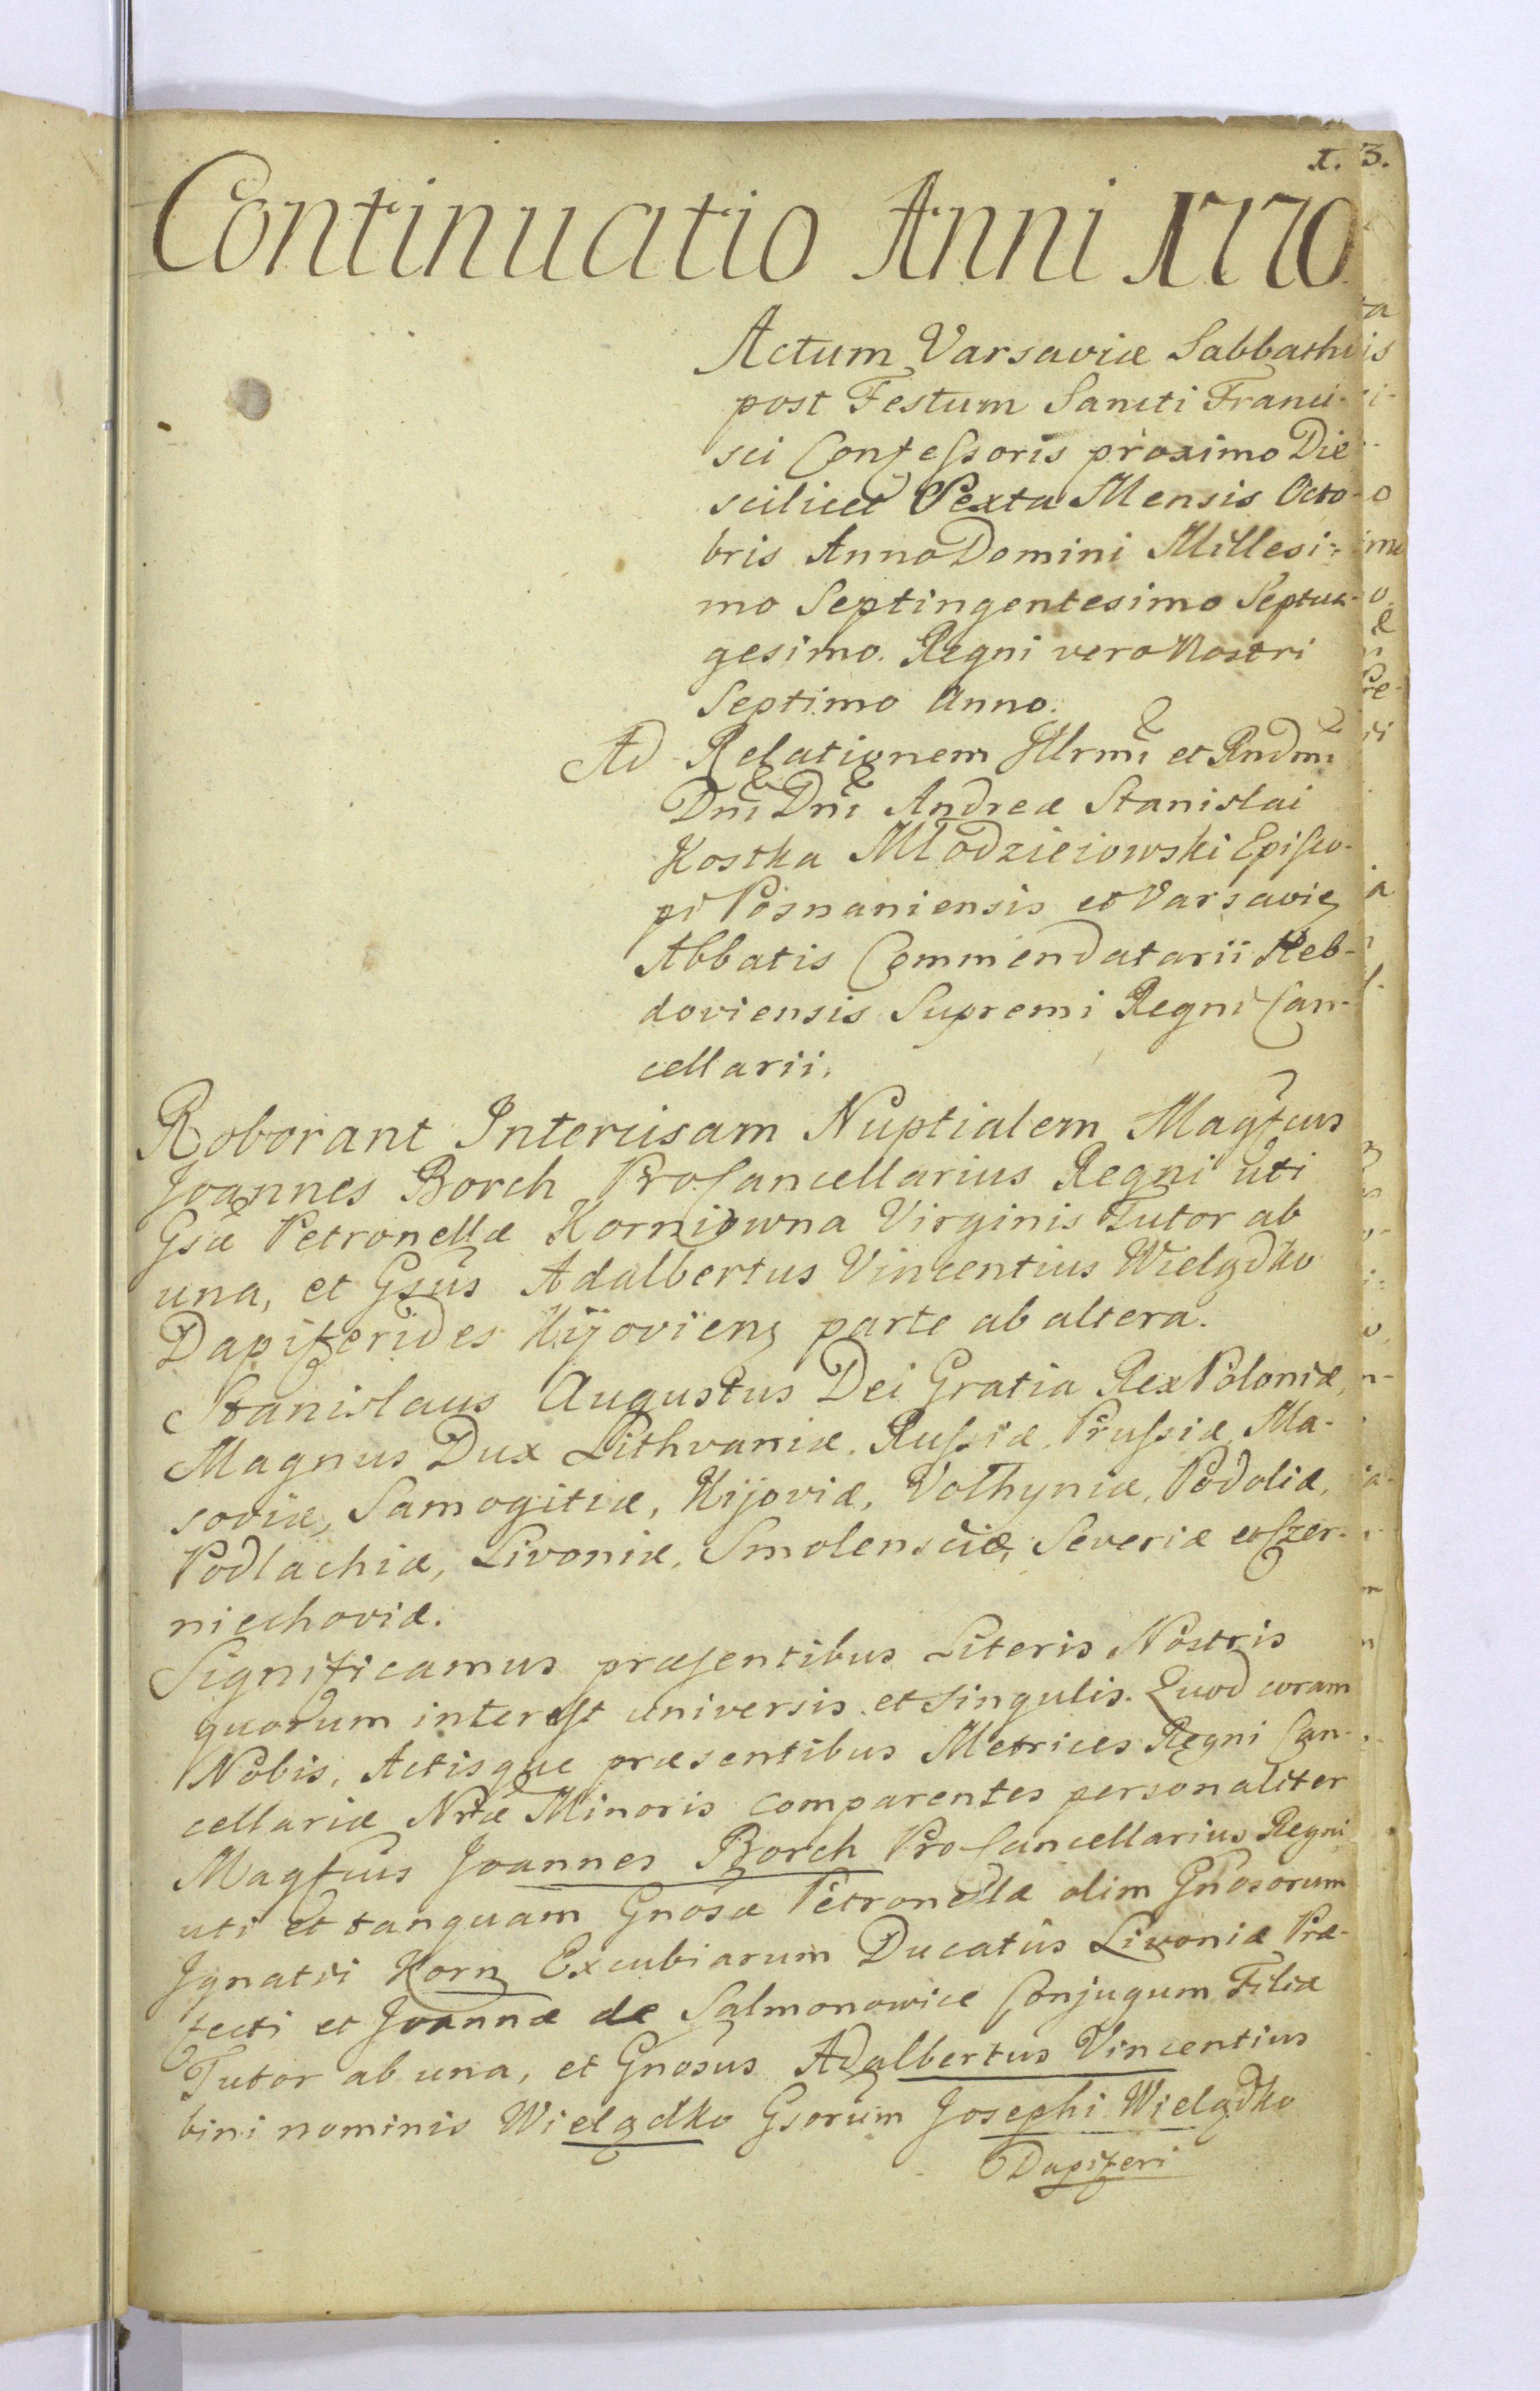 1. 3.
Continuatio Anni 1770
Actum Varsaviæ Sabbatho
post Festum Sancti Franci-
sci Confessoris proximo Die
scilicet Sexta Mensis Octo-
bris Anno Domini Millesi-
mo Septingentesimo Septua-
gesimo. Regni vero Nostri
Septimo Anno.
Ad Relationem Illrmi et Rndmi
Dni Dni Andreæ Stanislai
Kostka Młodzieiowski Episco-
pi Posnaniensis et Varsavie
Abbatis Commendatarii Heb-
doviensis Supremi Regni Can-
cellarii.
Roborant Intercisam Nuptialem Magfcus
Joannes Borch ProCancellarius Regni uti
Gsæ Petronellæ Korniowna Virginis Tutor ab
una, et Gsus Adalbertus Vincentius Wielądko
Dapiferides Kijoviens parte ab altera.
Stanislaus Augustus Dei Gratia Rex Poloniæ,
Magnus Dux Lithvaniæ, Russiæ, Prussiæ, Ma-
soviæ, Samogitiæ, Kijoviæ, Volhyniæ, Podoliæ,
Podlachiæ, Livoniæ, Smolensciæ, Severiæ et Czer-
niechoviæ.
Significamus præsentibus Literis Nostris
quorum interest universis et singulis. Quod coram
Nobis, Actisque præsentibus Metrices Regni Can-
cellariæ Nræ Minoris comparentes personaliter
Magfcus Joannes Borch ProCancellarius Regni
uti et tanquam Gnosæ Petronellæ olim Gnosorum
Ignatii Korn Excubiarum Ducatus Livoniæ Præ-
fecti et Joannæ de Salmonowice Conjugum Filiæ
Tutor ab una, et Gnosus Adalbertus Vincentius
bini nominis Wielądko Gsorum Josephi Wielądko
Dapiferi